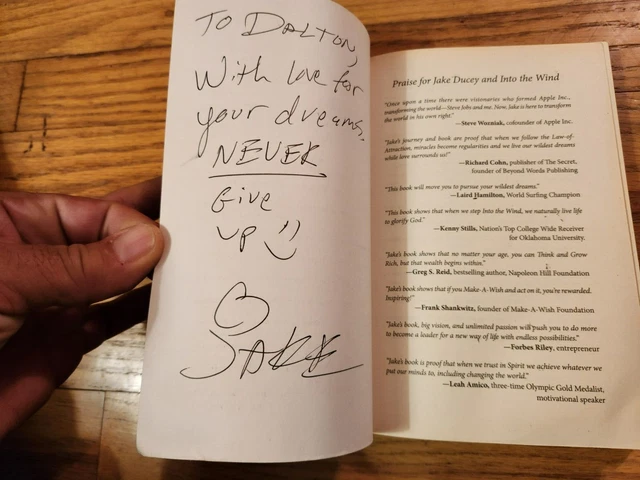 TO DALTON,
With love for
your dreams.
NEVER
Give
UP
JAKE
Praise for Jake Ducey and Into the Wind
"Once upon a time there were visionaries who formed Apple Inc.,
transforming the world—Steve Jobs and me. Now, Jake is here to transform
the world in his own right."
—Steve Wozniak, cofounder of Apple Inc.
"Jake's journey and book are proof that when we follow the Law-of-
Attraction, miracles become regularities and we live our wildest dreams
while love surrounds us!"
—Richard Cohn, publisher of The Secret,
founder of Beyond Words Publishing
"This book will move you to pursue your wildest dreams."
—Laird Hamilton, World Surfing Champion
"This book shows that when we step Into the Wind, we naturally live life
to glorify God."
—Kenny Stills, Nation's Top College Wide Receiver
for Oklahoma University.
"Jake's book shows that no matter your age, you can Think and Grow
Rich, but that wealth begins within."
—Greg S. Reid, bestselling author, Napoleon Hill Foundation
"Jake's book shows that if you Make-A-Wish and act on it, you're rewarded.
Inspiring!"
—Frank Shankwitz, founder of Make-A-Wish Foundation
"Jake's book, big vision, and unlimited passion will push you to do more
to become a leader for a new way of life with endless possibilities."
—Forbes Riley, entrepreneur
"Jake's book is proof that when we trust in Spirit we achieve whatever we
put our minds to, including changing the world."
—Leah Amico, three-time Olympic Gold Medalist,
motivational speaker